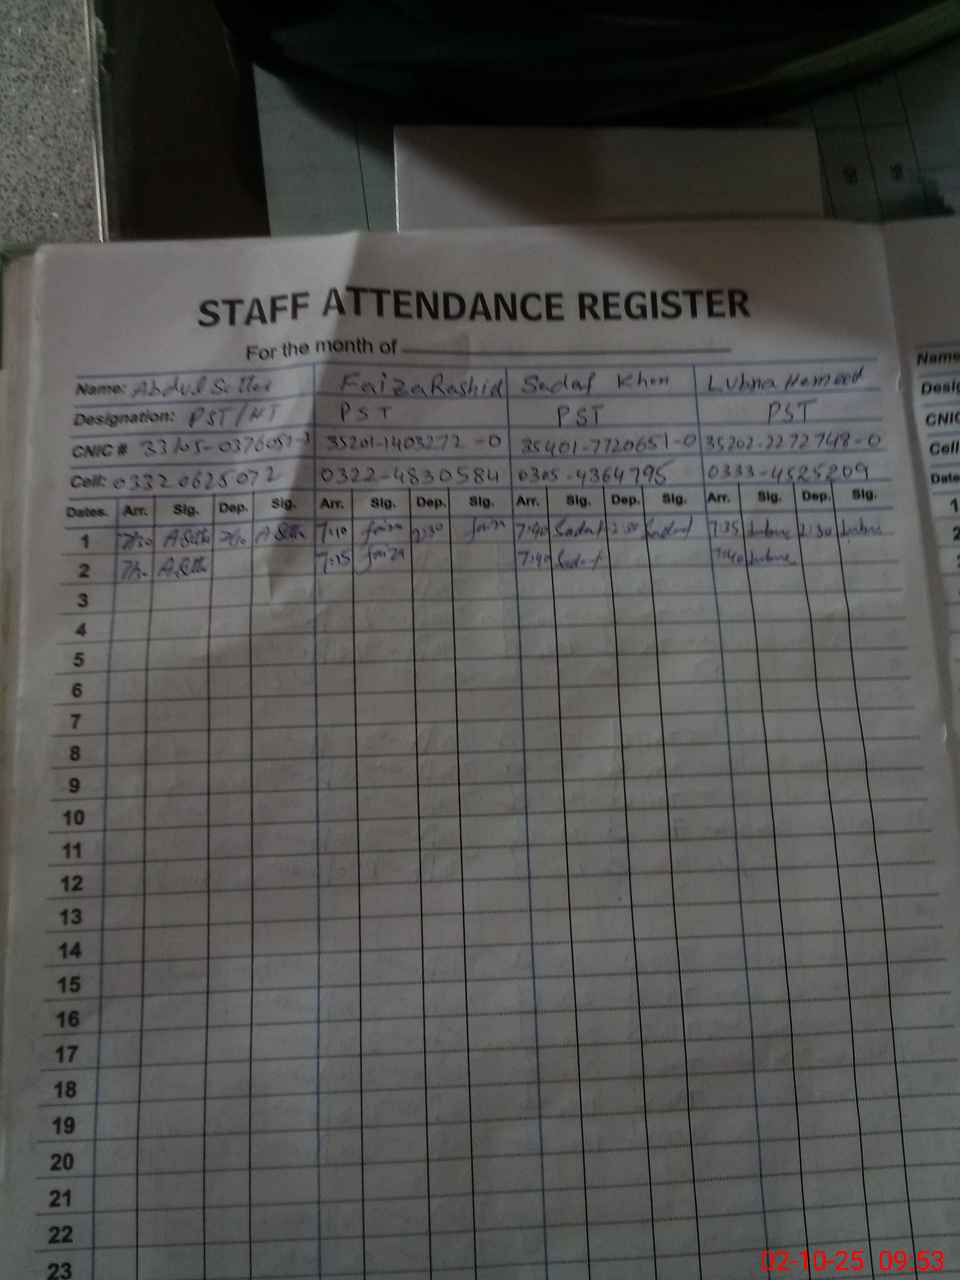 STAFF ATTENDANCE REGISTER
For the month of
Name: Abdul Sattar Faiza Rashid Sadaf Khan Lubna Hameed
Name
Designation: PST/HT PST PST PST
Desig
CNIC # 35201-1403272-0 35401-7720651-0 35202-2272748-0
CNIC
Cell: 0332 0625072 0322-4830584 0305-4364795 0333-4525209
Cell
Dates. Arr. Sig. Dep. Sig. Arr. Sig. Dep. Sig. Arr. Sig. Dep. Sig. Arr. Sig. Dep. Sig.
Date
1 A Sattar A Sattar 7:10 faiza 2:30 faiza 7:40 Sadaf 2:30 Sadaf 7:35 Lubna 2:30 Lubna
1
2 A Sattar 7:15 faiza 7:40 Sadaf 7:40 Lubna
2
3
4
5
6
7
8
9
10
11
12
13
14
15
16
17
18
19
20
21
22
23
02-10-25 09.53